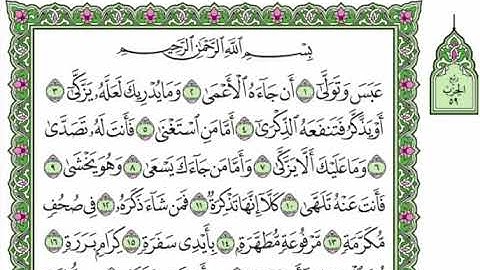 بِسْمِ اللَّهِ الرَّحْمَٰنِ الرَّحِيمِ
عَبَسَ وَتَوَلَّىٰ ١ أَن جَاءَهُ الْأَعْمَىٰ ٢ وَمَا يُدْرِيكَ لَعَلَّهُ يَزَّكَّىٰ ٣
أَوْ يَذَّكَّرُ فَتَنفَعَهُ الذِّكْرَىٰ ٤ أَمَّا مَنِ اسْتَغْنَىٰ ٥ فَأَنتَ لَهُ تَصَدَّىٰ
٦ وَمَا عَلَيْكَ أَلَّا يَزَّكَّىٰ ٧ وَأَمَّا مَن جَاءَكَ يَسْعَىٰ ٨ وَهُوَ يَخْشَىٰ ٩
فَأَنتَ عَنْهُ تَلَهَّىٰ ١٠ كَلَّا إِنَّهَا تَذْكِرَةٌ ١١ فَمَن شَاءَ ذَكَرَهُ ١٢ فِي صُحُفٍ
مُّكَرَّمَةٍ ١٣ مَّرْفُوعَةٍ مُّطَهَّرَةٍ ١٤ بِأَيْدِي سَفَرَةٍ ١٥ كِرَامٍ بَرَرَةٍ ١٦
ربع
الحزب
٥٩